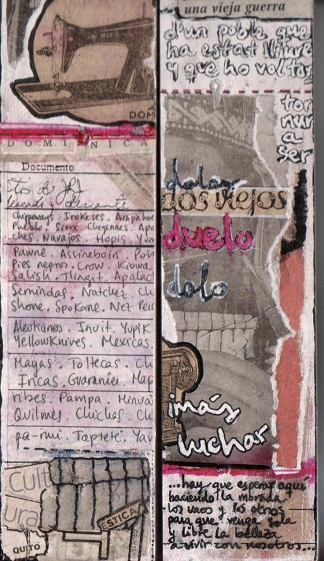 DOM
DOMINICA
Documento
Chippeways. Irokeses. Arapaho
Pueblo. Sioux. Cheyennes. Apa
ches. Navajos. Hopis. Yu
Pawne. Assineboin. Pon
Pies negros. Crow. Kiowa
Salish. Tlingit. Apalac
Seminolas. Natchez. Ch
shone. Spokane. Nez Per
Aleutianos. Inuit. Yupik
YellowKnives. Mexicas.
Mayas. Toltecas. Ch
Incas. Guaranies. Map
ribes. Pampa. Minua
Quilmes. Chichas. Ch
Tapieté. Yav
Cult
ura
STICA
QUITO
una vieja guerra
d'un poble que
ha estat lliure
y que ho volta
tor
nar
a
ser
dolor
dos viejos
duelo
dolo
¡más
luchar!
...hay que esperar aquí
haciendo la morada
los unos y los otros
para que venga sola
y libre la belleza
a vivir con nosotros...